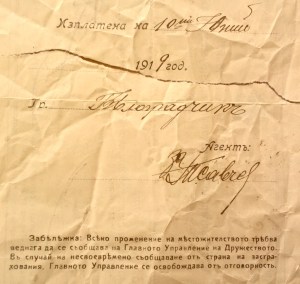 Изплатена на 10ий Юний
1919 год.
Гр. Белоградчикъ
Агентъ:
Забѣлѣжка: Всѣко промѣнение на мѣстожителството трѣбва
веднага да се съобщава на Главното Управление на Дружеството.
Въ случай на несвоеврѣмено съобщаване отъ страна на застра-
хования, Главното Управление се освобождава отъ отговорность.